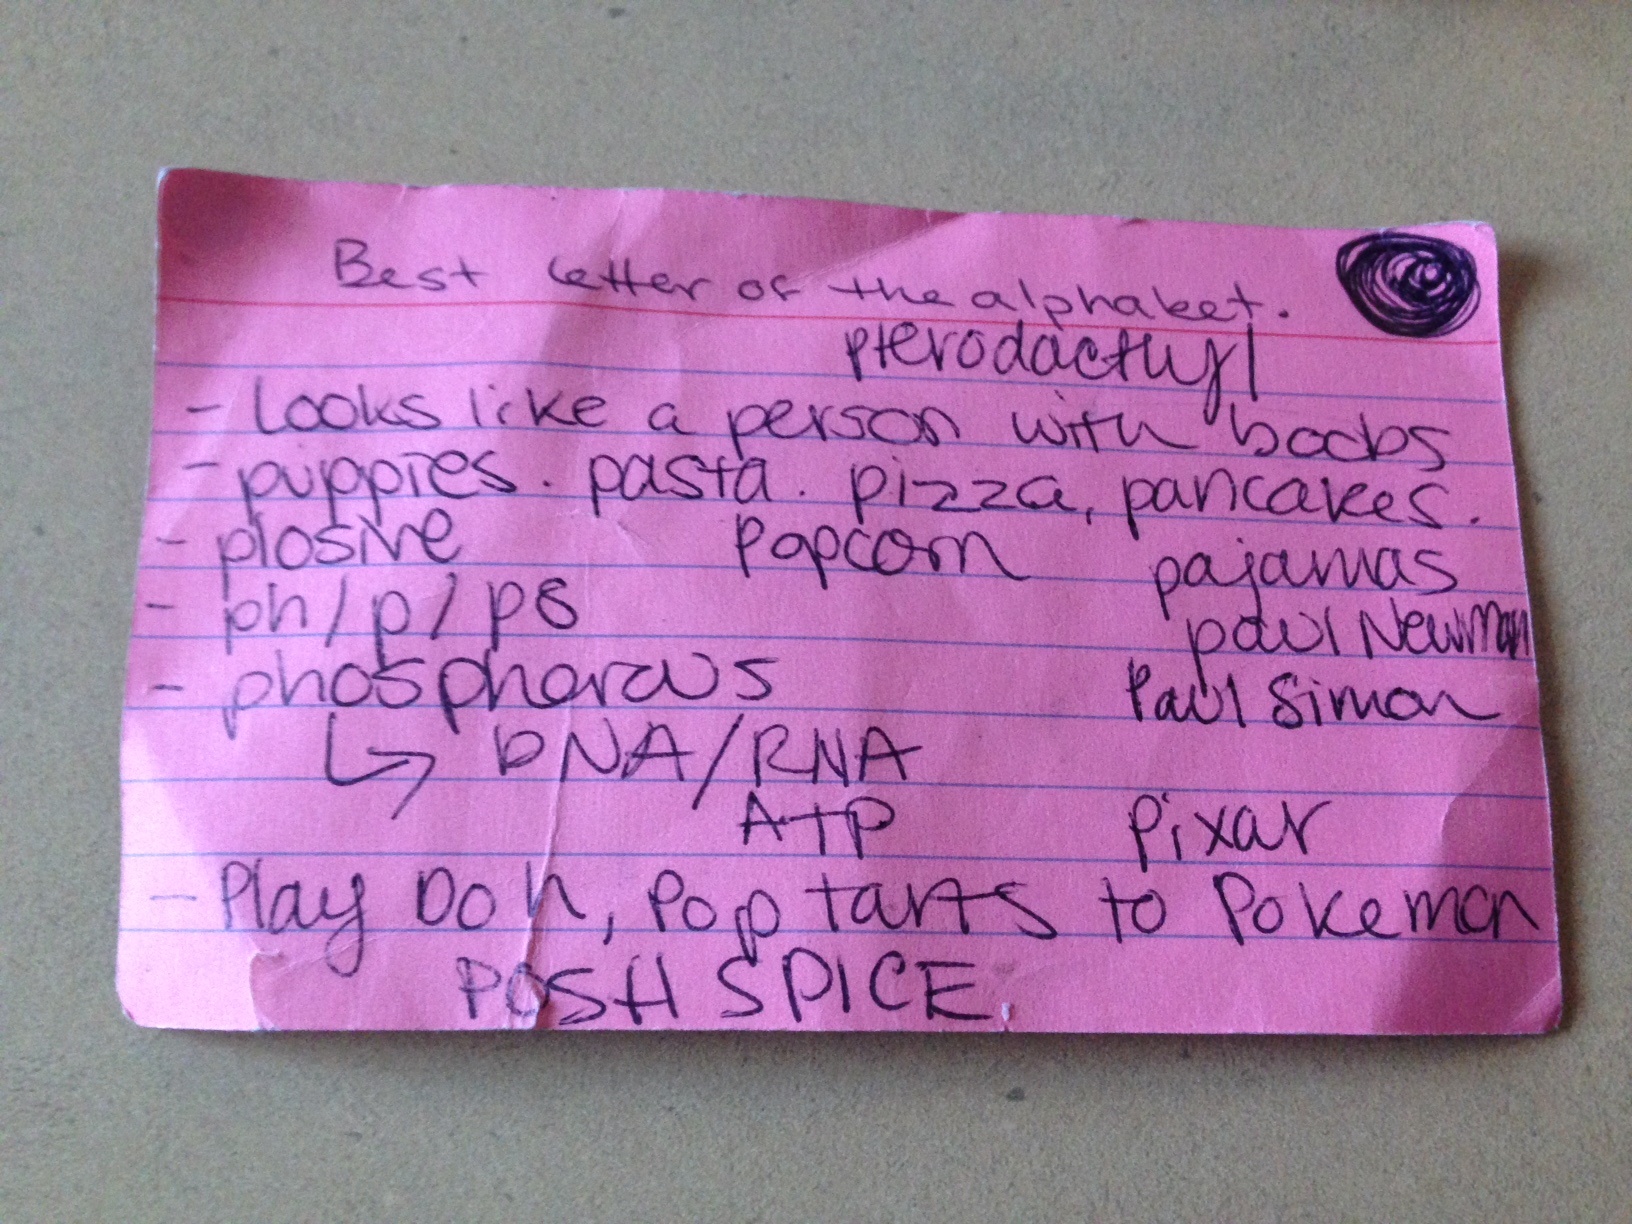 Best letter of the alphabet.
pterodactyl
- Looks like a person with boobs
- puppies. pasta. pizza, pancakes.
- plosive popcorn pajamas
- ph/p/ps paul Newman
- phosphorous Paul Simon
DNA/RNA
ATP pixar
- Play Doh, Pop tarts to Pokemon
POSH SPICE.